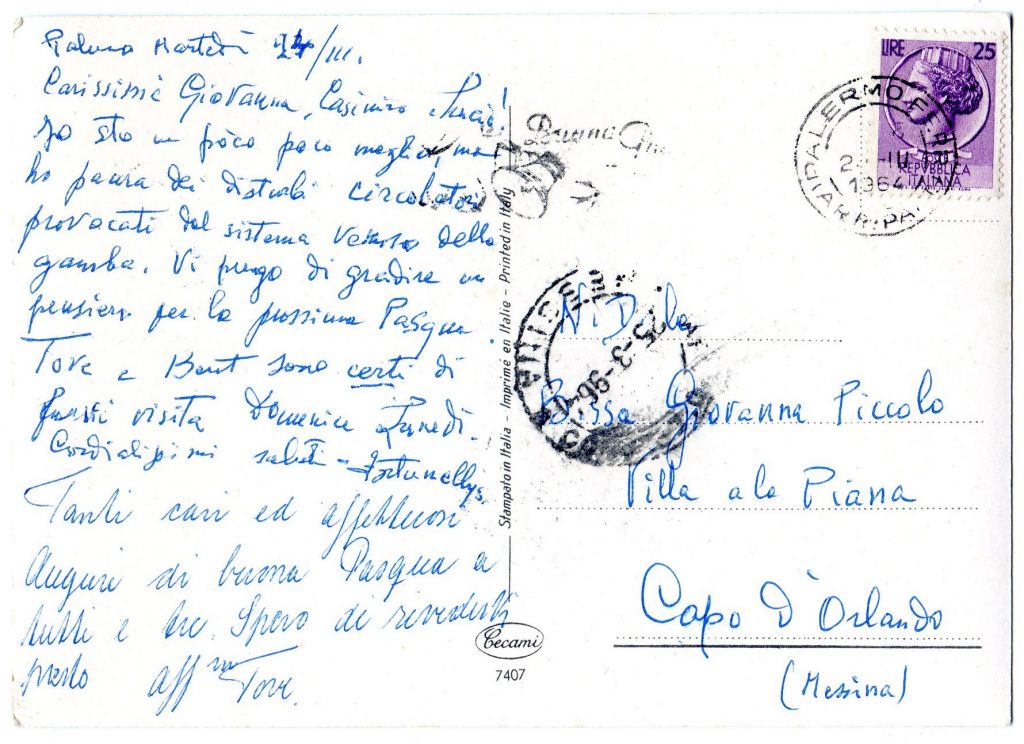 Martedì 24/III.
Carissimi Giovanna, Casimiro
Io sto un poco poco meglio, ma
ho paura dei disturbi circolatori
provocati dal sistema venoso della
gamba. Vi prego di gradire un
pensiero per la prossima Pasqua
Tove e Bent sono certi di
farvi visita Domenica Lunedì.
Cordialissimi saluti -
Tanti cari ed affettuosi
Auguri di buona Pasqua a
tutti e tre. Spero di rivedervi
presto aff.ma Tove.
Stampato in Italia - Imprimé en Italie - Printed in Italy
Cecami
7407
Buona
LIRE 25
REPVBBLICA
ITALIANA
PALERMO FERR.
III
1964
ARR. PA
25-3-964
N.D. la
B.ssa Giovanna Piccolo
Villa a la Piana
Capo d'Orlando
(Messina)